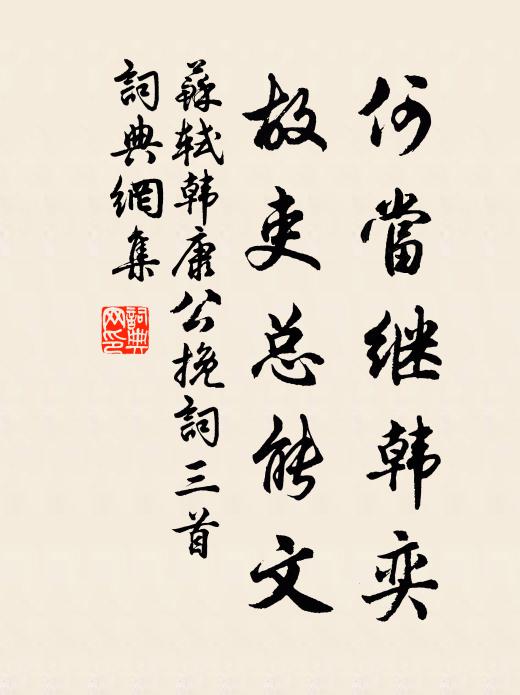 何當继韩奕
故吏总能文
蘇軾韩康公挽詞三首
詞典網集
詞典网印